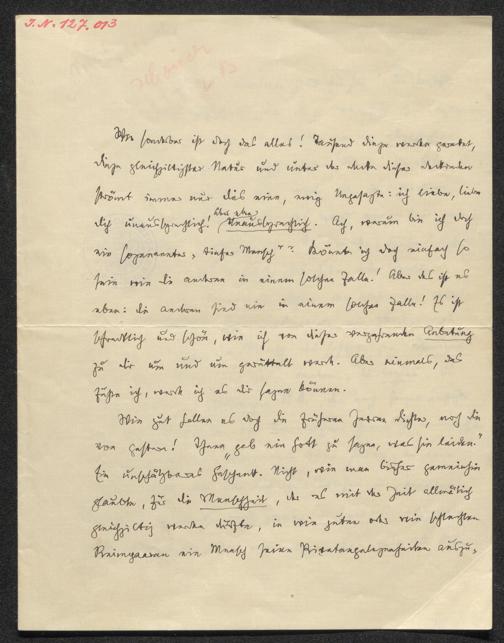 J.N. 127.013
Wie sonderbar ist doch das alles! Tausend Dinge werden geredet,
Dinge gleichgiltigster Natur und unter der Decke dieser
strömt immer nur das eine, ewig Ungesagte: ich liebe, liebe
dich unaussprechlich! Aber eben: Unaussprechlich. Ach, warum bin ich doch
ein sogenannter „tiefer Mensch"? Könnte ich doch einfach so
sein wie die anderen in einem solchen Falle! Aber das ist es
eben: die anderen sind nie in einem solchen Falle! Es ist
schrecklich und schön, wie ich von dieser verzehrenden Anbetung
zu dir um und um gerüttelt werde. Aber einmal, das
fühle ich, werde ich es dir sagen können.
Wie gut hatten es doch die früheren Dichter, noch die
von gestern! Ihnen „gab ein Gott zu sagen, was sie leiden."
Ein unschätzbares Geschenk. Nicht, wie man bisher gemeinhin
glaubte, für die Menschheit, der es mit der Zeit allmählich
gleichgiltig werden dürfte, in wie guten oder wie schlechten
Reimpaaren ein Mensch seine Privatangelegenheiten auszu-